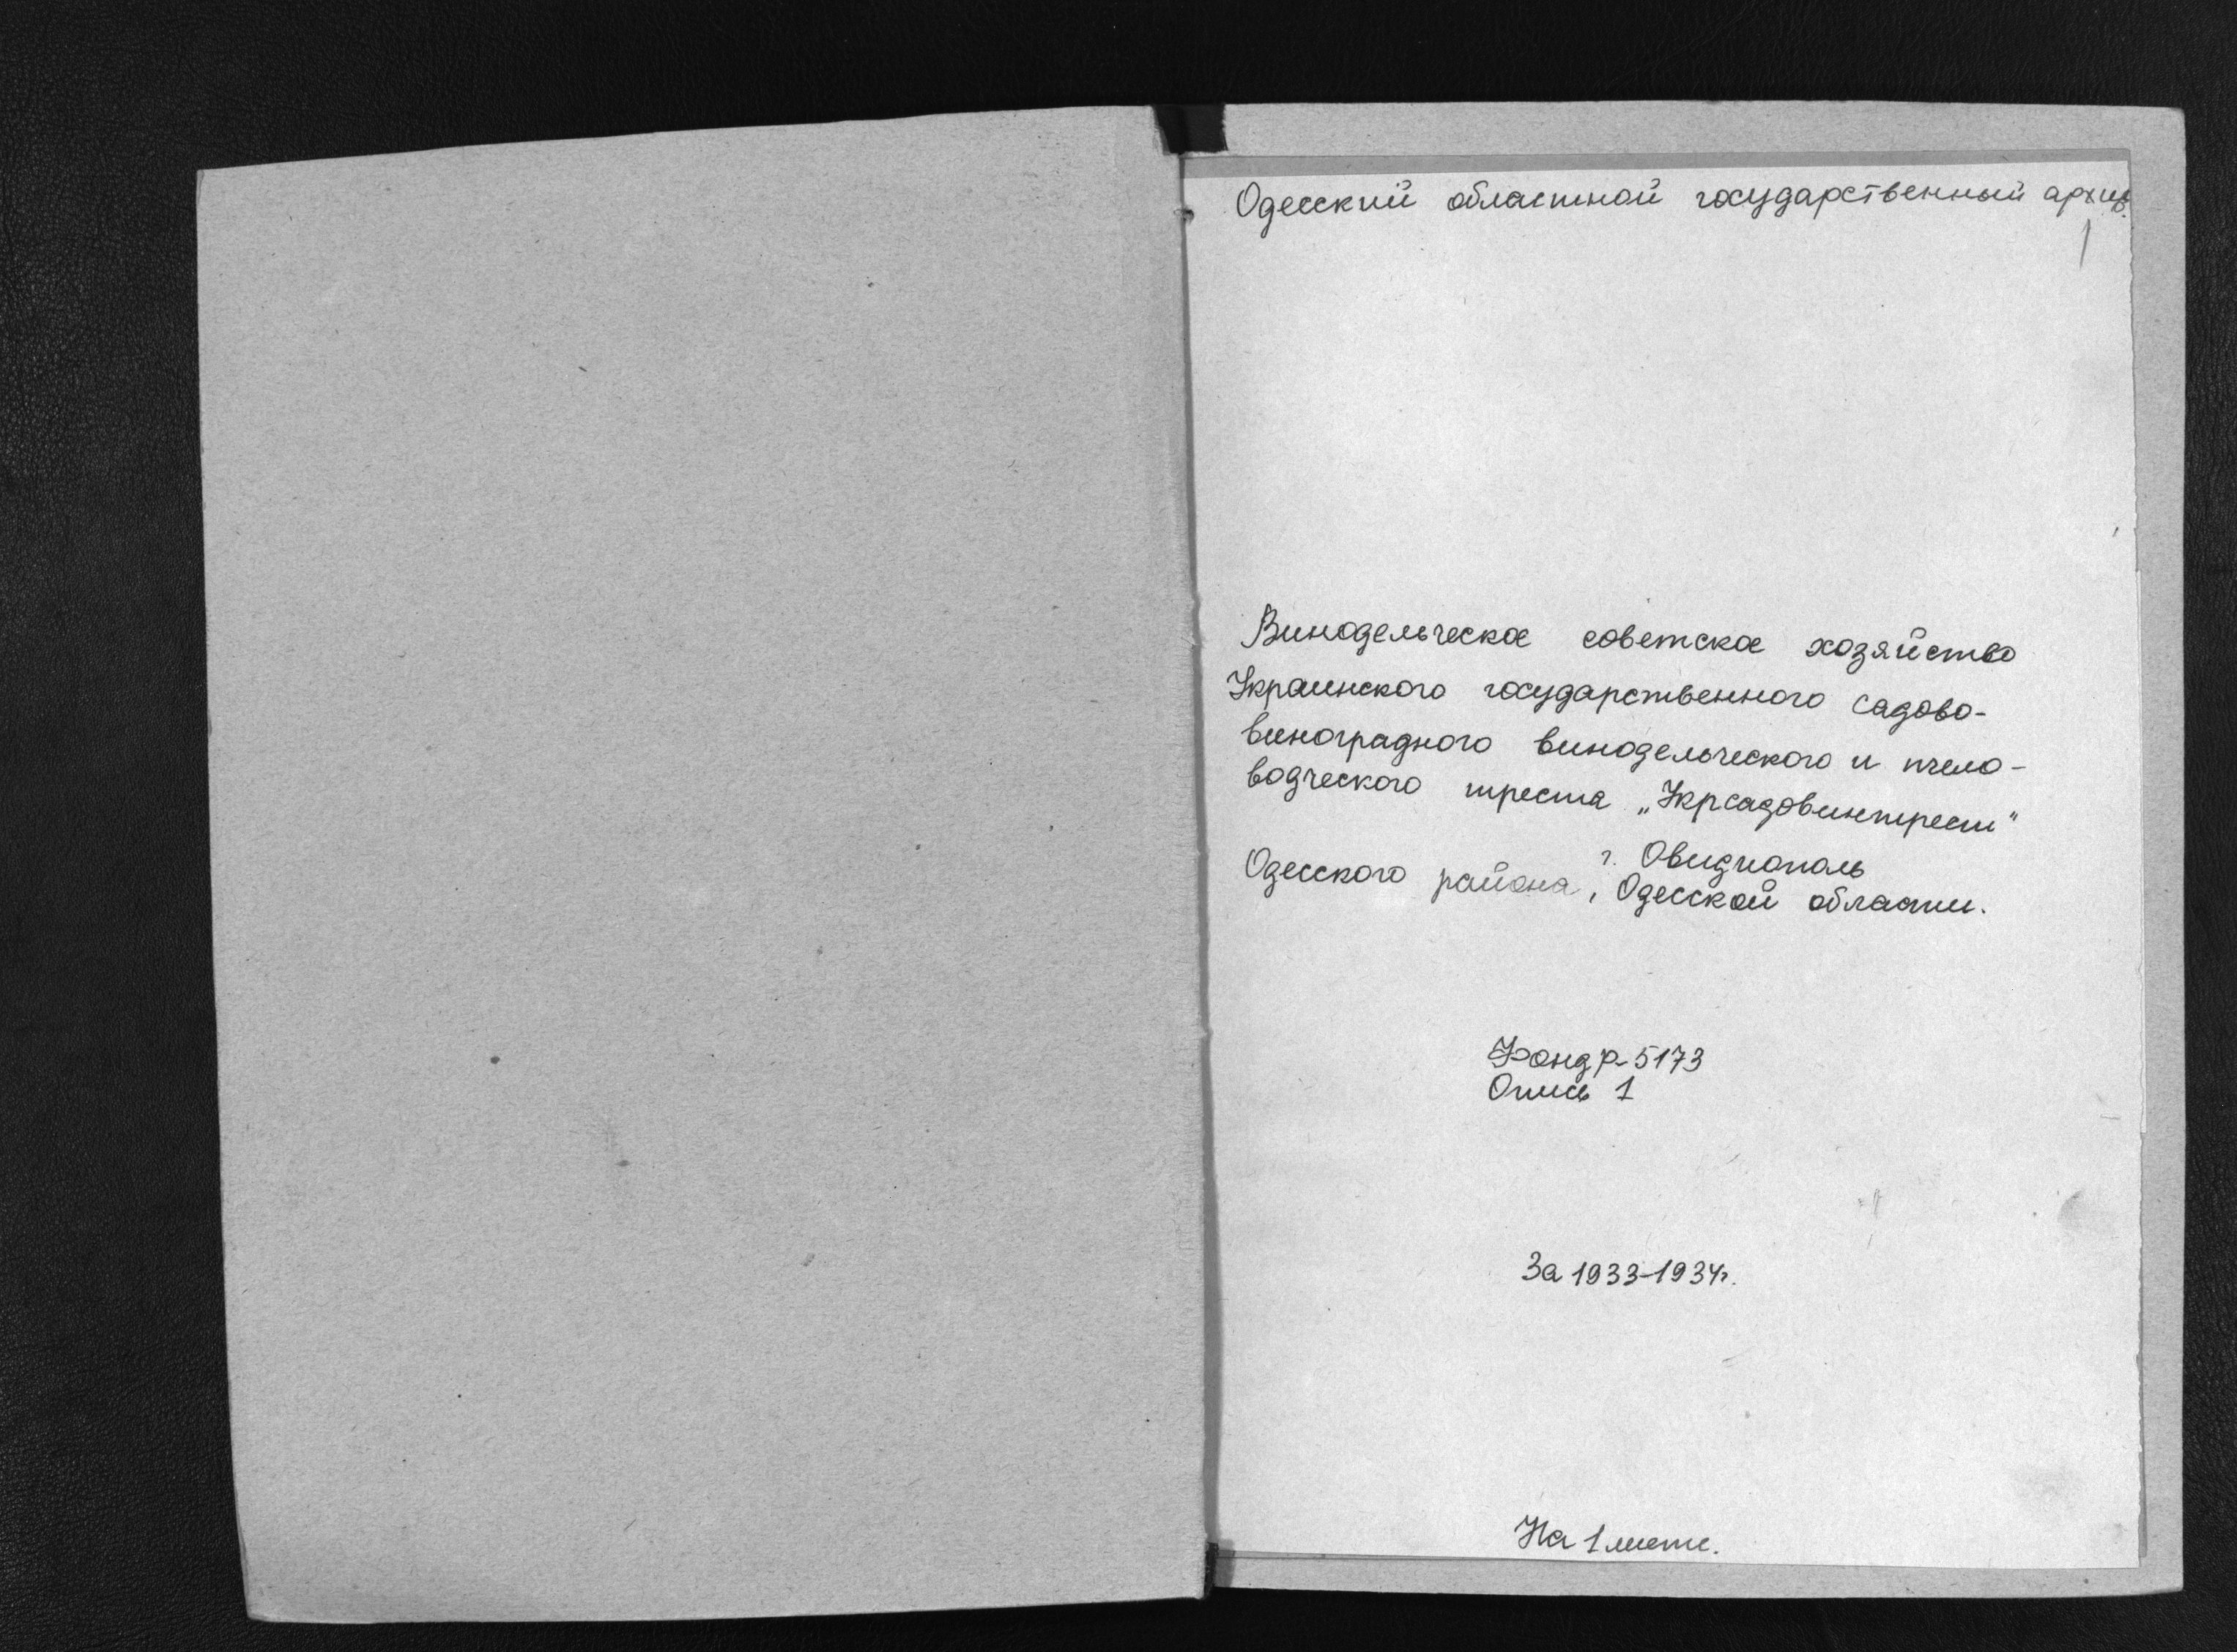 Одесский областной государственный архив.
1
Винодельческое советское хозяйство
Украинского государственного садово-
виноградного винодельческого и пчело-
водческого треста „Укрсадовинтрест"
г. Овидиополь
Одесского района, Одесской области.
Фонд Р-5173
Опись 1
За 1933-1934г.
На 1 листе.